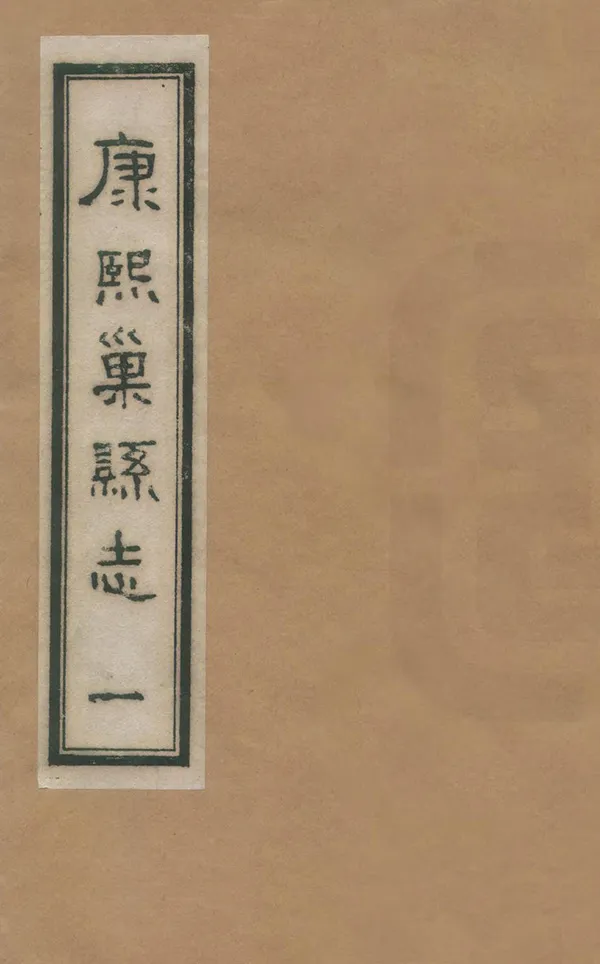 康熙巢縣志 一